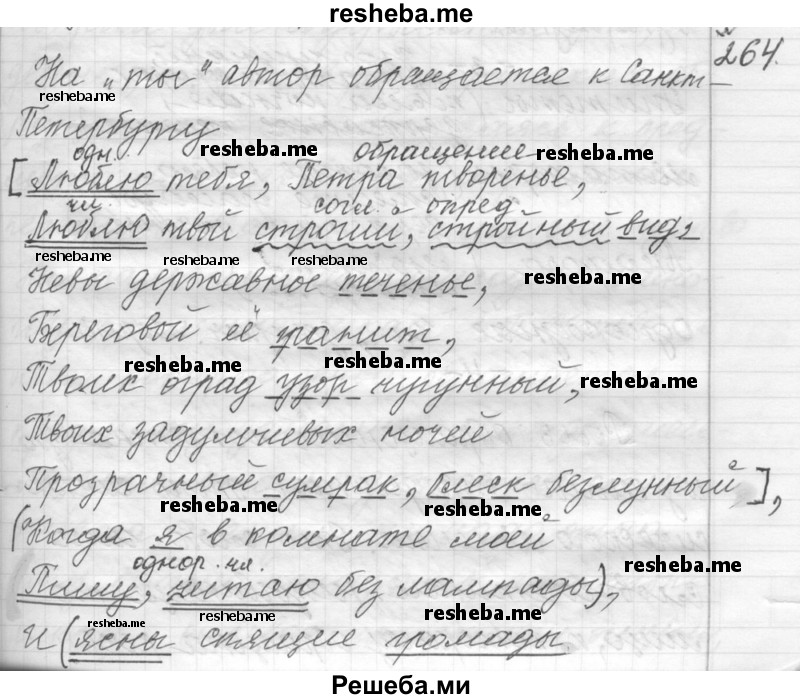 resheba.me
264.
На "ты" автор обращается к Санкт-
resheba.me
Петербургу
resheba.me
одн. обращение resheba.me
[Люблю тебя, Петра творенье,
чл. согл. опред.
Люблю твой строгий, стройный вид,
resheba.me resheba.me resheba.me
Невы державное теченье, resheba.me
Береговой её гранит,
resheba.me resheba.me
Твоих оград узор чугунный, resheba.me
Твоих задумчивых ночей
Прозрачный сумрак, блеск безлунный],
resheba.me resheba.me
(Когда я в комнате моей
однор. чл. resheba.me
Пишу, читаю без лампады),
resheba.me resheba.me resheba.me
И (ясны спящие громады
Решеба.ми